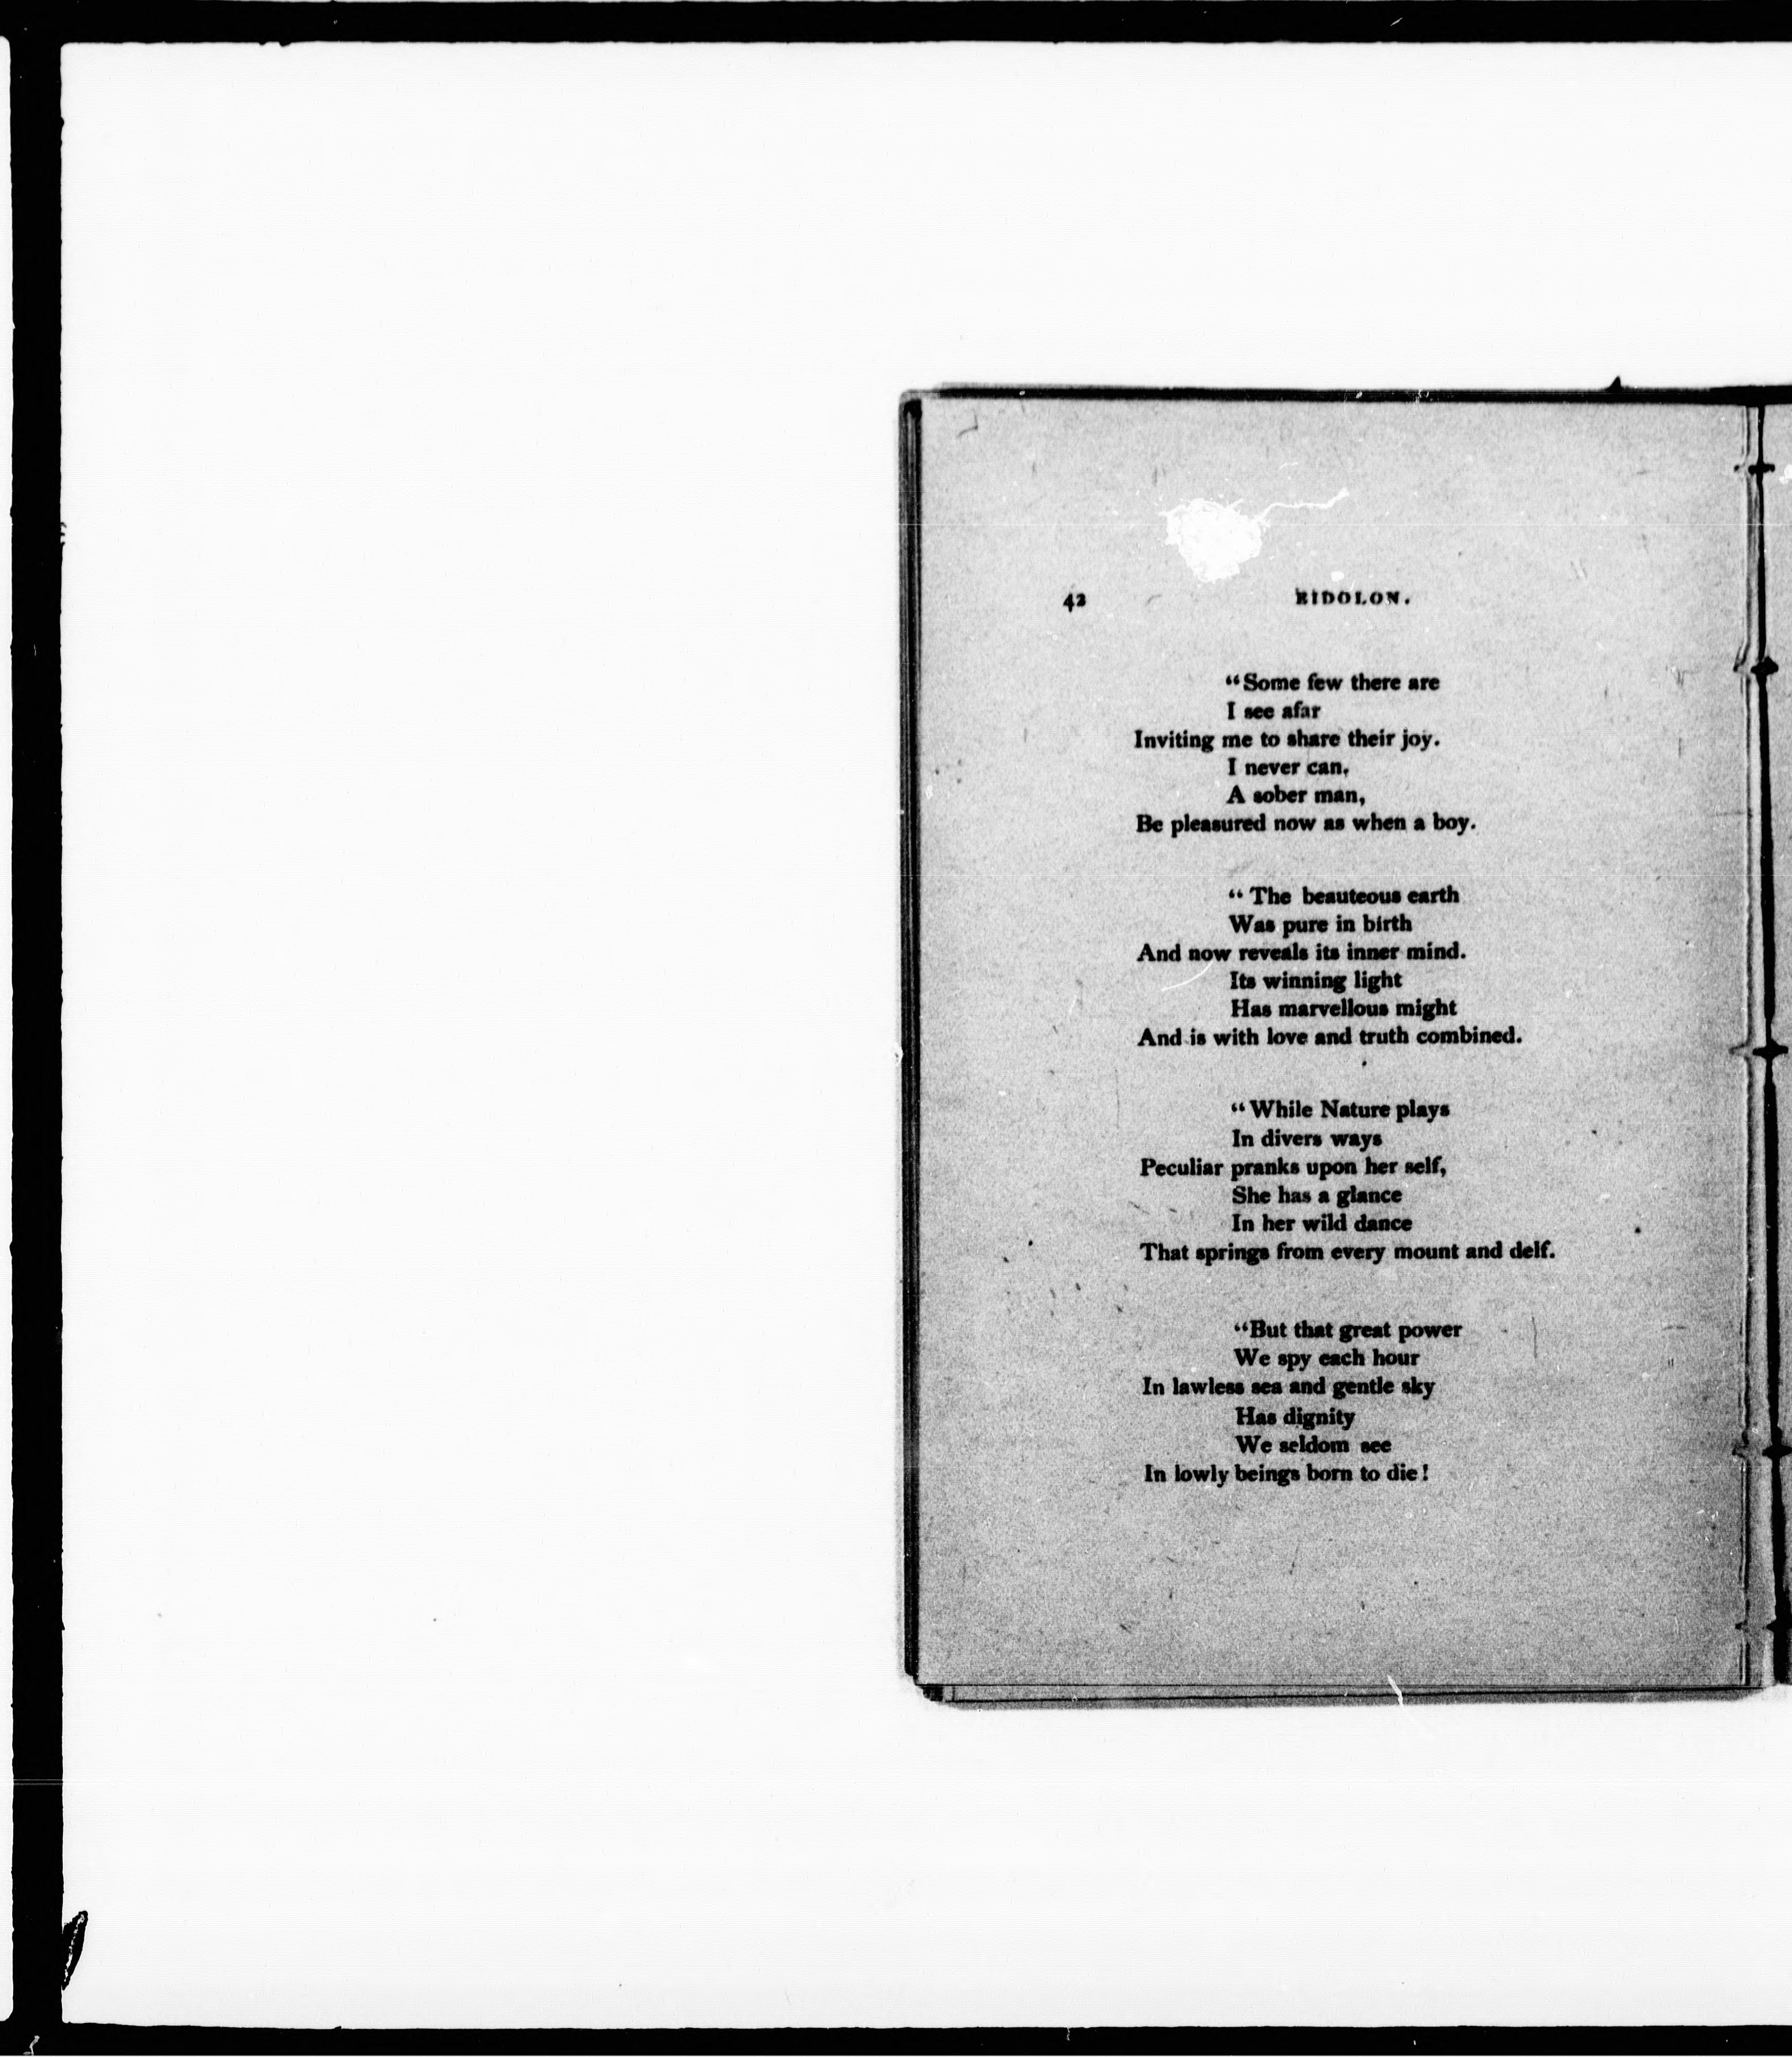 42 EIDOLON.
“Some few there are
I see afar
Inviting me to share their joy.
I never can,
A sober man,
Be pleasured now as when a boy.
“The beauteous earth
Was pure in birth
And now reveals its inner mind.
Its winning light
Has marvellous might
And is with love and truth combined.
“While Nature plays
In divers ways
Peculiar pranks upon her self,
She has a glance
In her wild dance
That springs from every mount and delf.
“But that great power
We spy each hour
In lawless sea and gentle sky
Has dignity
We seldom see
In lowly beings born to die!